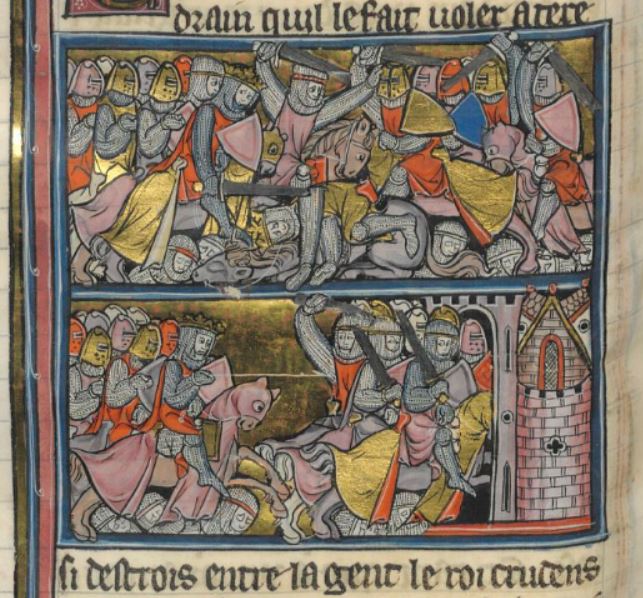 drain quil le fait uoler a tere
si destrois entre la gent le roi crudens